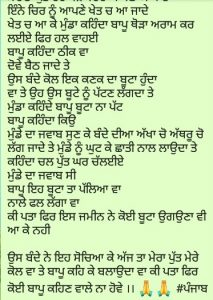 ਇੰਨੇ ਚਿਰ ਨੂੰ ਆਪਣੇ ਖੇਤ ਚ ਆ ਜਾਦੇ
ਖੇਤ ਚ ਆ ਕੇ ਮੁੰਡਾ ਕਹਿੰਦਾ ਬਾਪੂ ਥੋੜਾ ਅਰਾਮ ਕਰ
ਲਈਏ ਫਿਰ ਹਲ ਵਾਹਈ
ਬਾਪੂ ਕਹਿੰਦਾ ਠੀਕ ਵਾ
ਦੋਵੇ ਬੈਠ ਜਾਦੇ ਤੇ
ਉਸ ਬੰਦੇ ਕੋਲ ਇਕ ਕਣਕ ਦਾ ਬੂਟਾ ਹੁੰਦਾ
ਵਾ ਤੇ ਉਹ ਉਸ ਬੂਟੇ ਨੂੰ ਪੱਟਣ ਲੱਗਦਾ ਤੇ
ਮੁੰਡਾ ਕਹਿੰਦੇ ਬਾਪੂ ਬੂਟਾ ਨਾ ਪੱਟ
ਬਾਪੂ ਕਹਿੰਦਾ ਕਿਉ
ਮੁੰਡੇ ਦਾ ਜਵਾਬ ਸੁਣ ਕੇ ਬੰਦੇ ਦੀਆ ਅੱਖਾ ਚੋ ਅੱਥਰੂ ਚੋ
ਲੱਗ ਜਾਦੇ ਤੇ ਮੁੰਡੇ ਨੂੰ ਘੁਟ ਕੇ ਛਾਤੀ ਨਾਲ ਲਾਉਦਾ ਤੇ
ਕਹਿੰਵਾ ਚਲ ਪੁੱਤ ਘਰ ਚੱਲਈਏ
ਮੁੰਡੇ ਦਾ ਜਵਾਬ ਸੀ
ਬਾਪੂ ਇਹ ਬੂਟਾ ਤਾ ਪੱਲਿਆ ਵਾ
ਨਾਲੇ ਫਲ ਲੱਗਾ ਵਾ
ਕੀ ਪਤਾ ਫਿਰ ਇਸ ਜਮੀਨ ਨੇ ਕੋਈ ਬੂਟਾ ਉਗਾਉਣਾ ਵੀ
ਆ ਕੇ ਨਹੀ
ਉਸ ਬੰਦੇ ਨੇ ਇਹ ਸੋਚਿਆ ਕੇ ਅੱਜ ਤਾ ਮੇਰਾ ਪੁੱਤ ਮੇਰੇ
ਕੋਲ ਵਾ ਤੇ ਬਾਪੂ ਕਹਿ ਕੇ ਬਲਾਉਦਾ ਵਾ ਕੀ ਪਤਾ ਫਿਰ
ਕੋਈ ਬਾਪੂ ਕਹਿਣ ਵਾਲੇ ਨਾ ਹੋਵੇ ।। 🙏 🙏 #ਪੰਜਾਬ